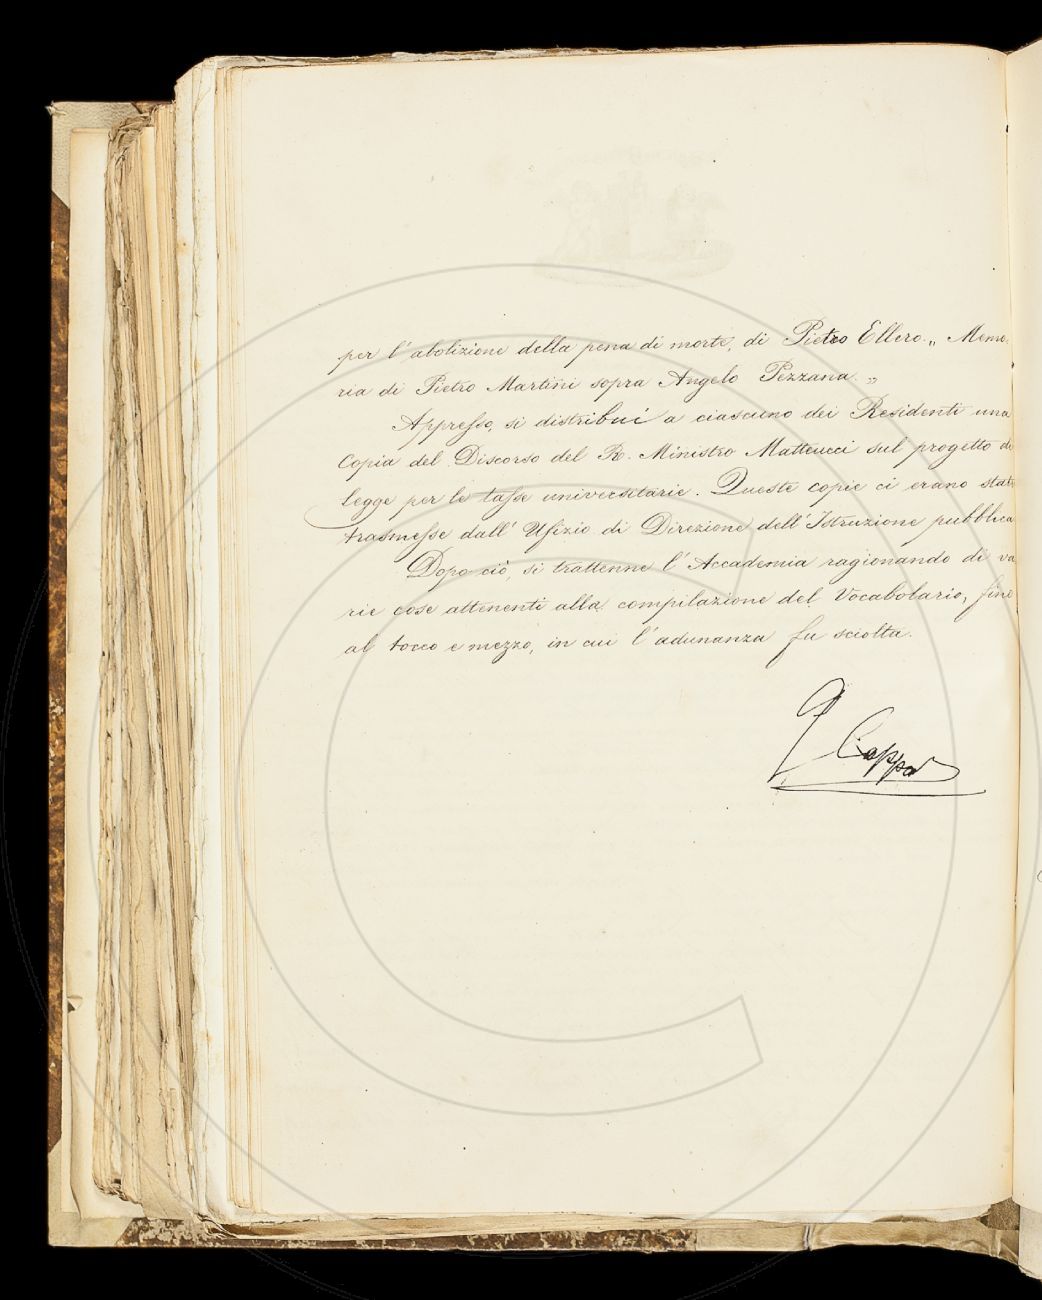 per l'abolizione della pena di morte, di Pietro Ellero.„ Memo
ria di Pietro Martini sopra Angelo Pezzana.„
Appresso, si distribuì a ciascuno dei Residenti una
Copia del Discorso del R. Ministro Matteucci sul progetto di
legge per le tasse universitarie. Queste copie ci erano state
trasmesse dall'Ufizio di Direzione dell'Istruzione pubblica
Dopo ciò, si trattenne l'Accademia ragionando di va
rie cose attenenti alla compilazione del Vocabolario, fino
al tocco e mezzo, in cui l'adunanza fu sciolta.
G Capponi